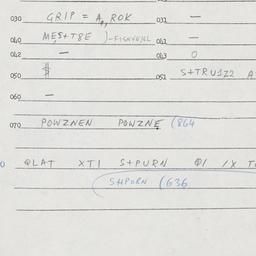 030 GRIP = A, ROK 031 —
040 MES+T8E 041 —
042 — 043 0
050 051 S+TRU1Z2 A
060 —
070 POWZNEN POWZNE (864
QLAT XTI S+PURN Q1 1X T
S+PURN (636